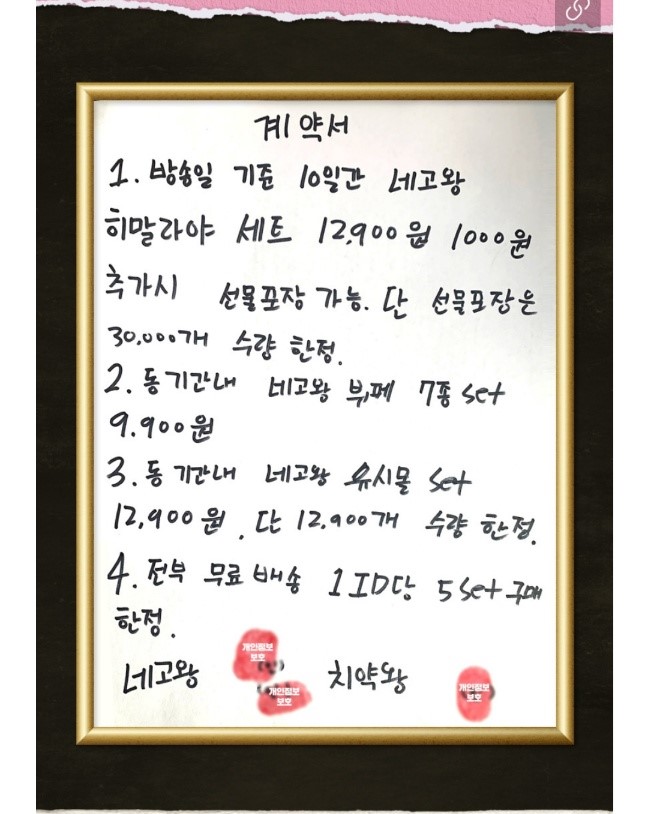 계약서
1. 방송일 기준 10일간 네고왕
히말라야 세트 12,900원 1000원
추가시 선물포장 가능. 단 선물포장은
30,000개 수량 한정.
2. 동기간내 네고왕 뷔페 7종 set
9.900원
3. 동기간내 네고왕 유시몰 set
12,900원. 단 12.900개 수량 한정.
4. 전부 무료배송 1ID당 5set 구매
한정.
네고왕 치약왕
개인정보
보호
개인정보
보호
개인정보
보호